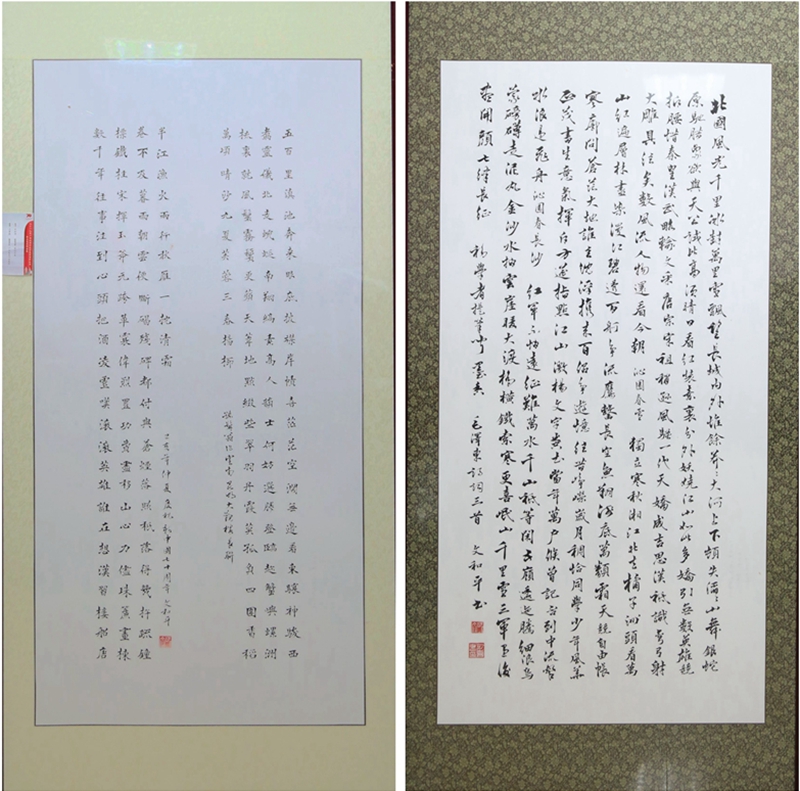 五百里滇池奔來眼底披襟岸幘喜茫茫空闊無邊看東驤神駿西
翥靈儀北走蜿蜒南翔縞素高人韻士何妨選勝登臨趁蟹嶼螺洲
梳裹就風鬟霧鬢更蘋天葦地點綴些翠羽丹霞莫孤負四圍香稻
萬頃晴沙九夏芙蓉三春楊柳
孫髯翁作雲南昆明大觀樓長聯
數千年往事注到心頭把酒凌虛嘆滾滾英雄誰在想漢習樓船唐
標鐵柱宋揮玉斧元跨革囊偉烈豐功費盡移山心力儘珠簾畫棟
卷不及暮雨朝雲便斷碣殘碑都付與蒼煙落照祇落得幾杵疏鐘
半江漁火兩行秋雁一枕清霜
己亥年仲夏慶祝新中國七十周年文和平
北國風光千里冰封萬里雪飄望長城內外惟餘莽莽大河上下頓失滔滔山舞銀蛇
原馳蠟象欲與天公試比高須晴日看紅裝素裹分外妖嬈江山如此多嬌引無數英雄競
折腰惜秦皇漢武略輸文采唐宗宋祖稍遜風騷一代天驕成吉思漢祇識彎弓射
大雕具往矣數風流人物還看今朝 沁園春雪 獨立寒秋湘江北去橘子洲頭看萬
山紅遍層林盡染漫江碧透百舸爭流鷹擊長空魚翔淺底萬類霜天競自由悵
寥廓問蒼茫大地誰主沈浮攜來百侶曾遊憶往昔崢嶸歲月稠恰同學少年風華
正茂書生意氣揮斥方遒指點江山激揚文字糞土當年萬戶侯曾記否到中流擊
水浪遏飛舟 沁園春長沙 紅軍不怕遠征難萬水千山祇等閒五嶺逶迤騰細浪烏
蒙磅礴走泥丸金沙水拍雲崖暖大渡橋橫鐵索寒更喜岷山千里雪三軍過後
盡開顏 七律長征 初學者 毛澤東詩詞三首 文和平書